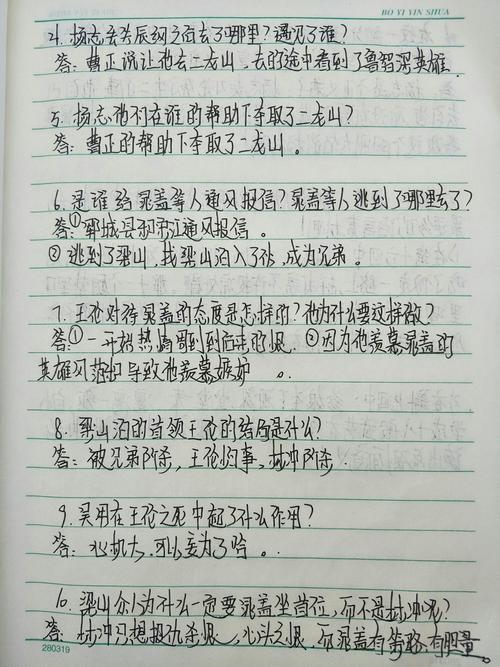 BO YI YIN SHUA
4. 杨志去生辰纲之后去了哪里？遇见了谁？
答：曹正说让他去二龙山，去的途中看到了鲁智深英雄.
5. 杨志他们在谁的帮助下夺取了二龙山？
答：曹正的帮助下夺取了二龙山。
6. 是谁给晁盖等人通风报信？晁盖等人逃到了哪里去了？
答：① 郓城县和宋江通风报信。
② 逃到了梁山，找梁山泊入了伙，成为兄弟。
7. 王伦对待晁盖的态度是怎样的？他为什么要这样做？
答：① 一开始热情到后来的恨. ② 因为他羡慕晁盖的
英雄风范导致他羡慕嫉妒。
8. 梁山泊的首领王伦的结局是什么？
答：被兄弟所杀，王伦的事，林冲所杀.
9. 吴用在王伦之死中起了什么作用？
答：
10. 梁山众人为什么一定要晁盖坐首位，而不是林冲呢？
答：林冲只想报仇杀恨，之恨，而晁盖有策略有胆量。
280319